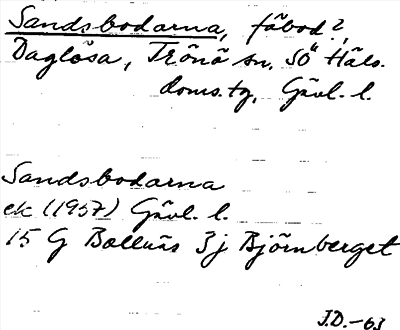 Sandsbodarna, fäbod?,
Daglösa, Trönö sn, SÖ Häls.
doms.tg, Gävl. l.
Sandsbodarna
ek (1957) Gävl. l.
15 G Bollnäs 3j Björnberget
J.D.-63